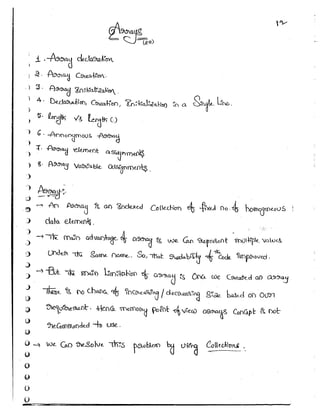 12
Arrays
(20)
1. Array declaration.
2. Array Creation.
3. Array Initialization.
4. Declaration, Creation, Initialization in a Single Line.
5. length vs length()
6. Annonymous Array
7. Array element assignments.
8. Array Variable assignments.
Array:-
→ An Array is an Indexed Collection of fixed no of homogeneous
data elements.
→ The main advantage of array is we Can represent multiple values
Under the Same name. So, That readability of the Code Improved.
→ But the main Limitation of array is Once we Created an array
There is no chance of increasing/decreasing Size based on Our
requirement. Hence memory Point of view arrays Concept is not
recommended to use.
→ we Can resolve This problem by using Collections.